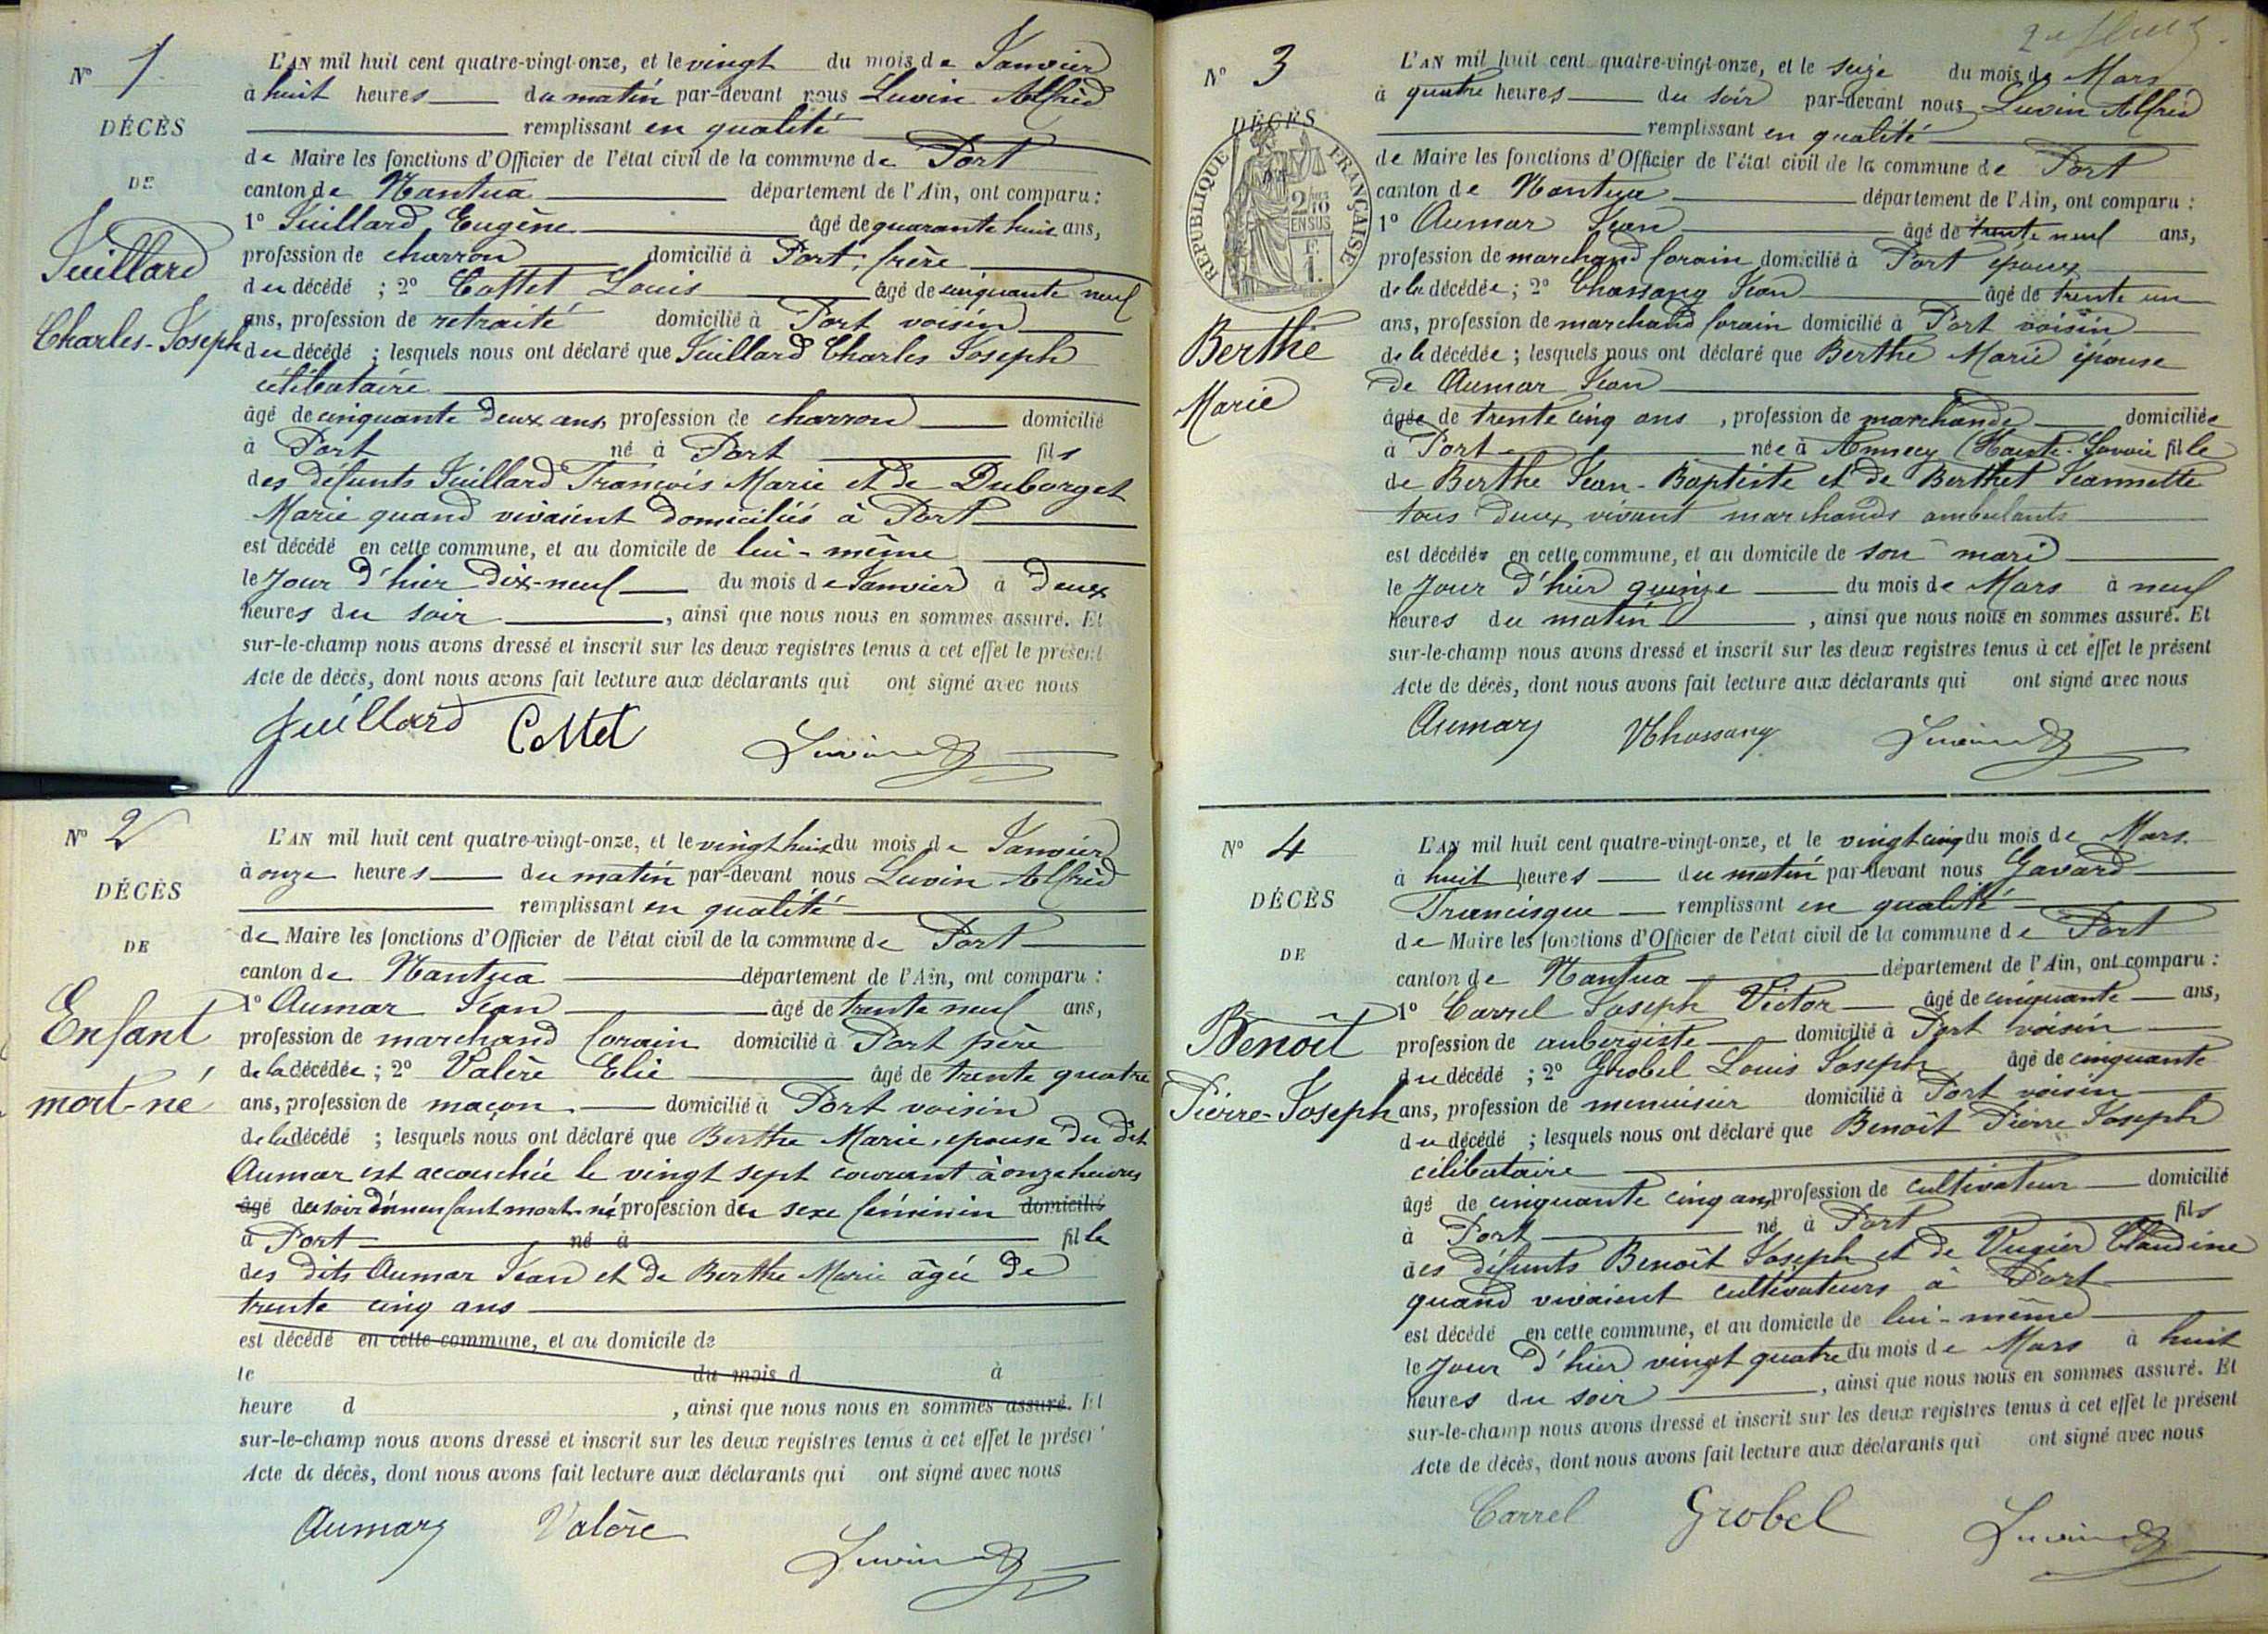 N° 1
DÉCÈS
DE
Juillard
Charles-Joseph
L'AN mil huit cent quatre-vingt-onze, et le vingt du mois de Janvier
à huit heures du matin par-devant nous Luvin Alfred
remplissant en qualité
de Maire les fonctions d'Officier de l'état civil de la commune de Port
canton de Nantua département de l'Ain, ont comparu :
1° Juillard Eugène âgé de quarante huit ans,
profession de charron domicilié à Port, frère
du décédé ; 2° Cottet Louis âgé de cinquante neuf
ans, profession de retraité domicilié à Port voisin
du décédé ; lesquels nous ont déclaré que Juillard Charles Joseph
célibataire
âgé de cinquante deux ans, profession de charron domicilié
à Port né à Port fils
des défunts Juillard François Marie et de Duborget
Marie quand vivaient domiciliés à Port
est décédé en cette commune, et au domicile de lui-même
le jour d'hier dix-neuf du mois de Janvier à deux
heures du soir, ainsi que nous nous en sommes assuré. Et
sur-le-champ nous avons dressé et inscrit sur les deux registres tenus à cet effet le présent
Acte de décès, dont nous avons fait lecture aux déclarants qui ont signé avec nous
Juillard Cottet Luvin
N° 2
DÉCÈS
DE
Enfant
mort-né
L'AN mil huit cent quatre-vingt-onze, et le vingt huit du mois de Janvier
à onze heures du matin par-devant nous Luvin Alfred
remplissant en qualité
de Maire les fonctions d'Officier de l'état civil de la commune de Port
canton de Nantua département de l'Ain, ont comparu :
1° Aumar Jean âgé de trente neuf ans,
profession de marchand forain domicilié à Port père
de la décédée ; 2° Valère Elie âgé de trente quatre
ans, profession de maçon domicilié à Port voisin
de la décédé ; lesquels nous ont déclaré que Berthe Marie, épouse du dit
Aumar est accouchée le vingt sept courant à onze heures
âgé du soir d'un enfant mort-né profession du sexe féminin domicilié
à Port né à fille
des dits Aumar Jean et de Berthe Marie âgée de
trente cinq ans
est décédé en cette commune, et au domicile de
le du mois d à
heure d , ainsi que nous nous en sommes assuré. Et
sur-le-champ nous avons dressé et inscrit sur les deux registres tenus à cet effet le présent
Acte de décès, dont nous avons fait lecture aux déclarants qui ont signé avec nous
Aumar Valère Luvin
N° 3
DÉCÈS
RÉPUBLIQUE FRANÇAISE
2/10 EN SUS
F. 1.
Berthe
Marie
L'AN mil huit cent quatre-vingt-onze, et le seize du mois de Mars
à quatre heures du soir par-devant nous Luvin Alfred
remplissant en qualité
de Maire les fonctions d'Officier de l'état civil de la commune de Port
canton de Nantua département de l'Ain, ont comparu :
1° Aumar Jean âgé de trente neuf ans,
profession de marchand forain domicilié à Port époux
de la décédée ; 2° Chassang Jean âgé de trente un
ans, profession de marchand forain domicilié à Port voisin
de la décédée ; lesquels nous ont déclaré que Berthe Marie épouse
de Aumar Jean
âgée de trente cinq ans, profession de marchande domiciliée
à Port née à Annecy (Haute-Savoie fille
de Berthe Jean-Baptiste et de Berthet Jeannette
tous deux vivant marchands ambulants
est décédée en cette commune, et au domicile de son mari
le jour d'hier quinze du mois de Mars à neuf
heures du matin, ainsi que nous nous en sommes assuré. Et
sur-le-champ nous avons dressé et inscrit sur les deux registres tenus à cet effet le présent
Acte de décès, dont nous avons fait lecture aux déclarants qui ont signé avec nous
Aumar Chassang Luvin
N° 4
DÉCÈS
DE
Benoît
Pierre-Joseph
L'AN mil huit cent quatre-vingt-onze, et le vingt cinq du mois de Mars
à huit heures du matin par-devant nous Gavard
Francisque remplissant en qualité
de Maire les fonctions d'Officier de l'état civil de la commune de Port
canton de Nantua département de l'Ain, ont comparu :
1° Carrel Joseph Victor âgé de cinquante ans,
profession de aubergiste domicilié à Port voisin
du décédé ; 2° Grobel Louis Joseph âgé de cinquante
ans, profession de menuisier domicilié à Port voisin
du décédé ; lesquels nous ont déclaré que Benoît Pierre Joseph
célibataire
âgé de cinquante cinq ans, profession de cultivateur domicilié
à Port né à Port fils
des défunts Benoît Joseph et de Vugier Claudine
quand vivaient cultivateurs à Port
est décédé en cette commune, et au domicile de lui-même
le jour d'hier vingt quatre du mois de Mars à huit
heures du soir, ainsi que nous nous en sommes assuré. Et
sur-le-champ nous avons dressé et inscrit sur les deux registres tenus à cet effet le présent
Acte de décès, dont nous avons fait lecture aux déclarants qui ont signé avec nous
Carrel Grobel Luvin